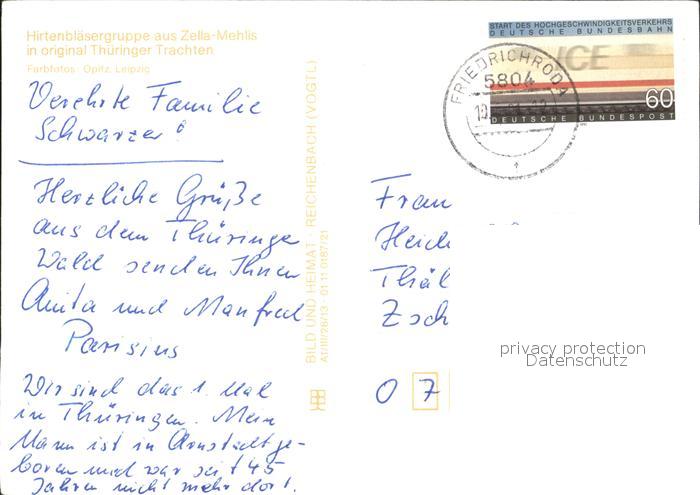 Hirtenbläsergruppe aus Zella-Mehlis
in original Thüringer Trachten
Farbfotos: Opitz, Leipzig
Verehrte Familie
Schwarzer!
Herzliche Grüße
aus dem Thüringe
Wald senden Ihnen
Anita und Manfred
Parisius
Wir sind das 1. Mal
in Thüringen. Mein
Mann ist in Arnstadt ge-
boren und war seit 45
Jahren nicht mehr dort.
BILD UND HEIMAT · REICHENBACH (VOGTL)
A1/III/26/13 · 01 11 0187/21
START DES HOCHGESCHWINDIGKEITSVERKEHRS
DEUTSCHE BUNDESBAHN
ICE
60
DEUTSCHE BUNDESPOST
FRIEDRICHRODA
5804
Frau
Heid
Thäl
Zsch
0 7
privacy protection
Datenschutz